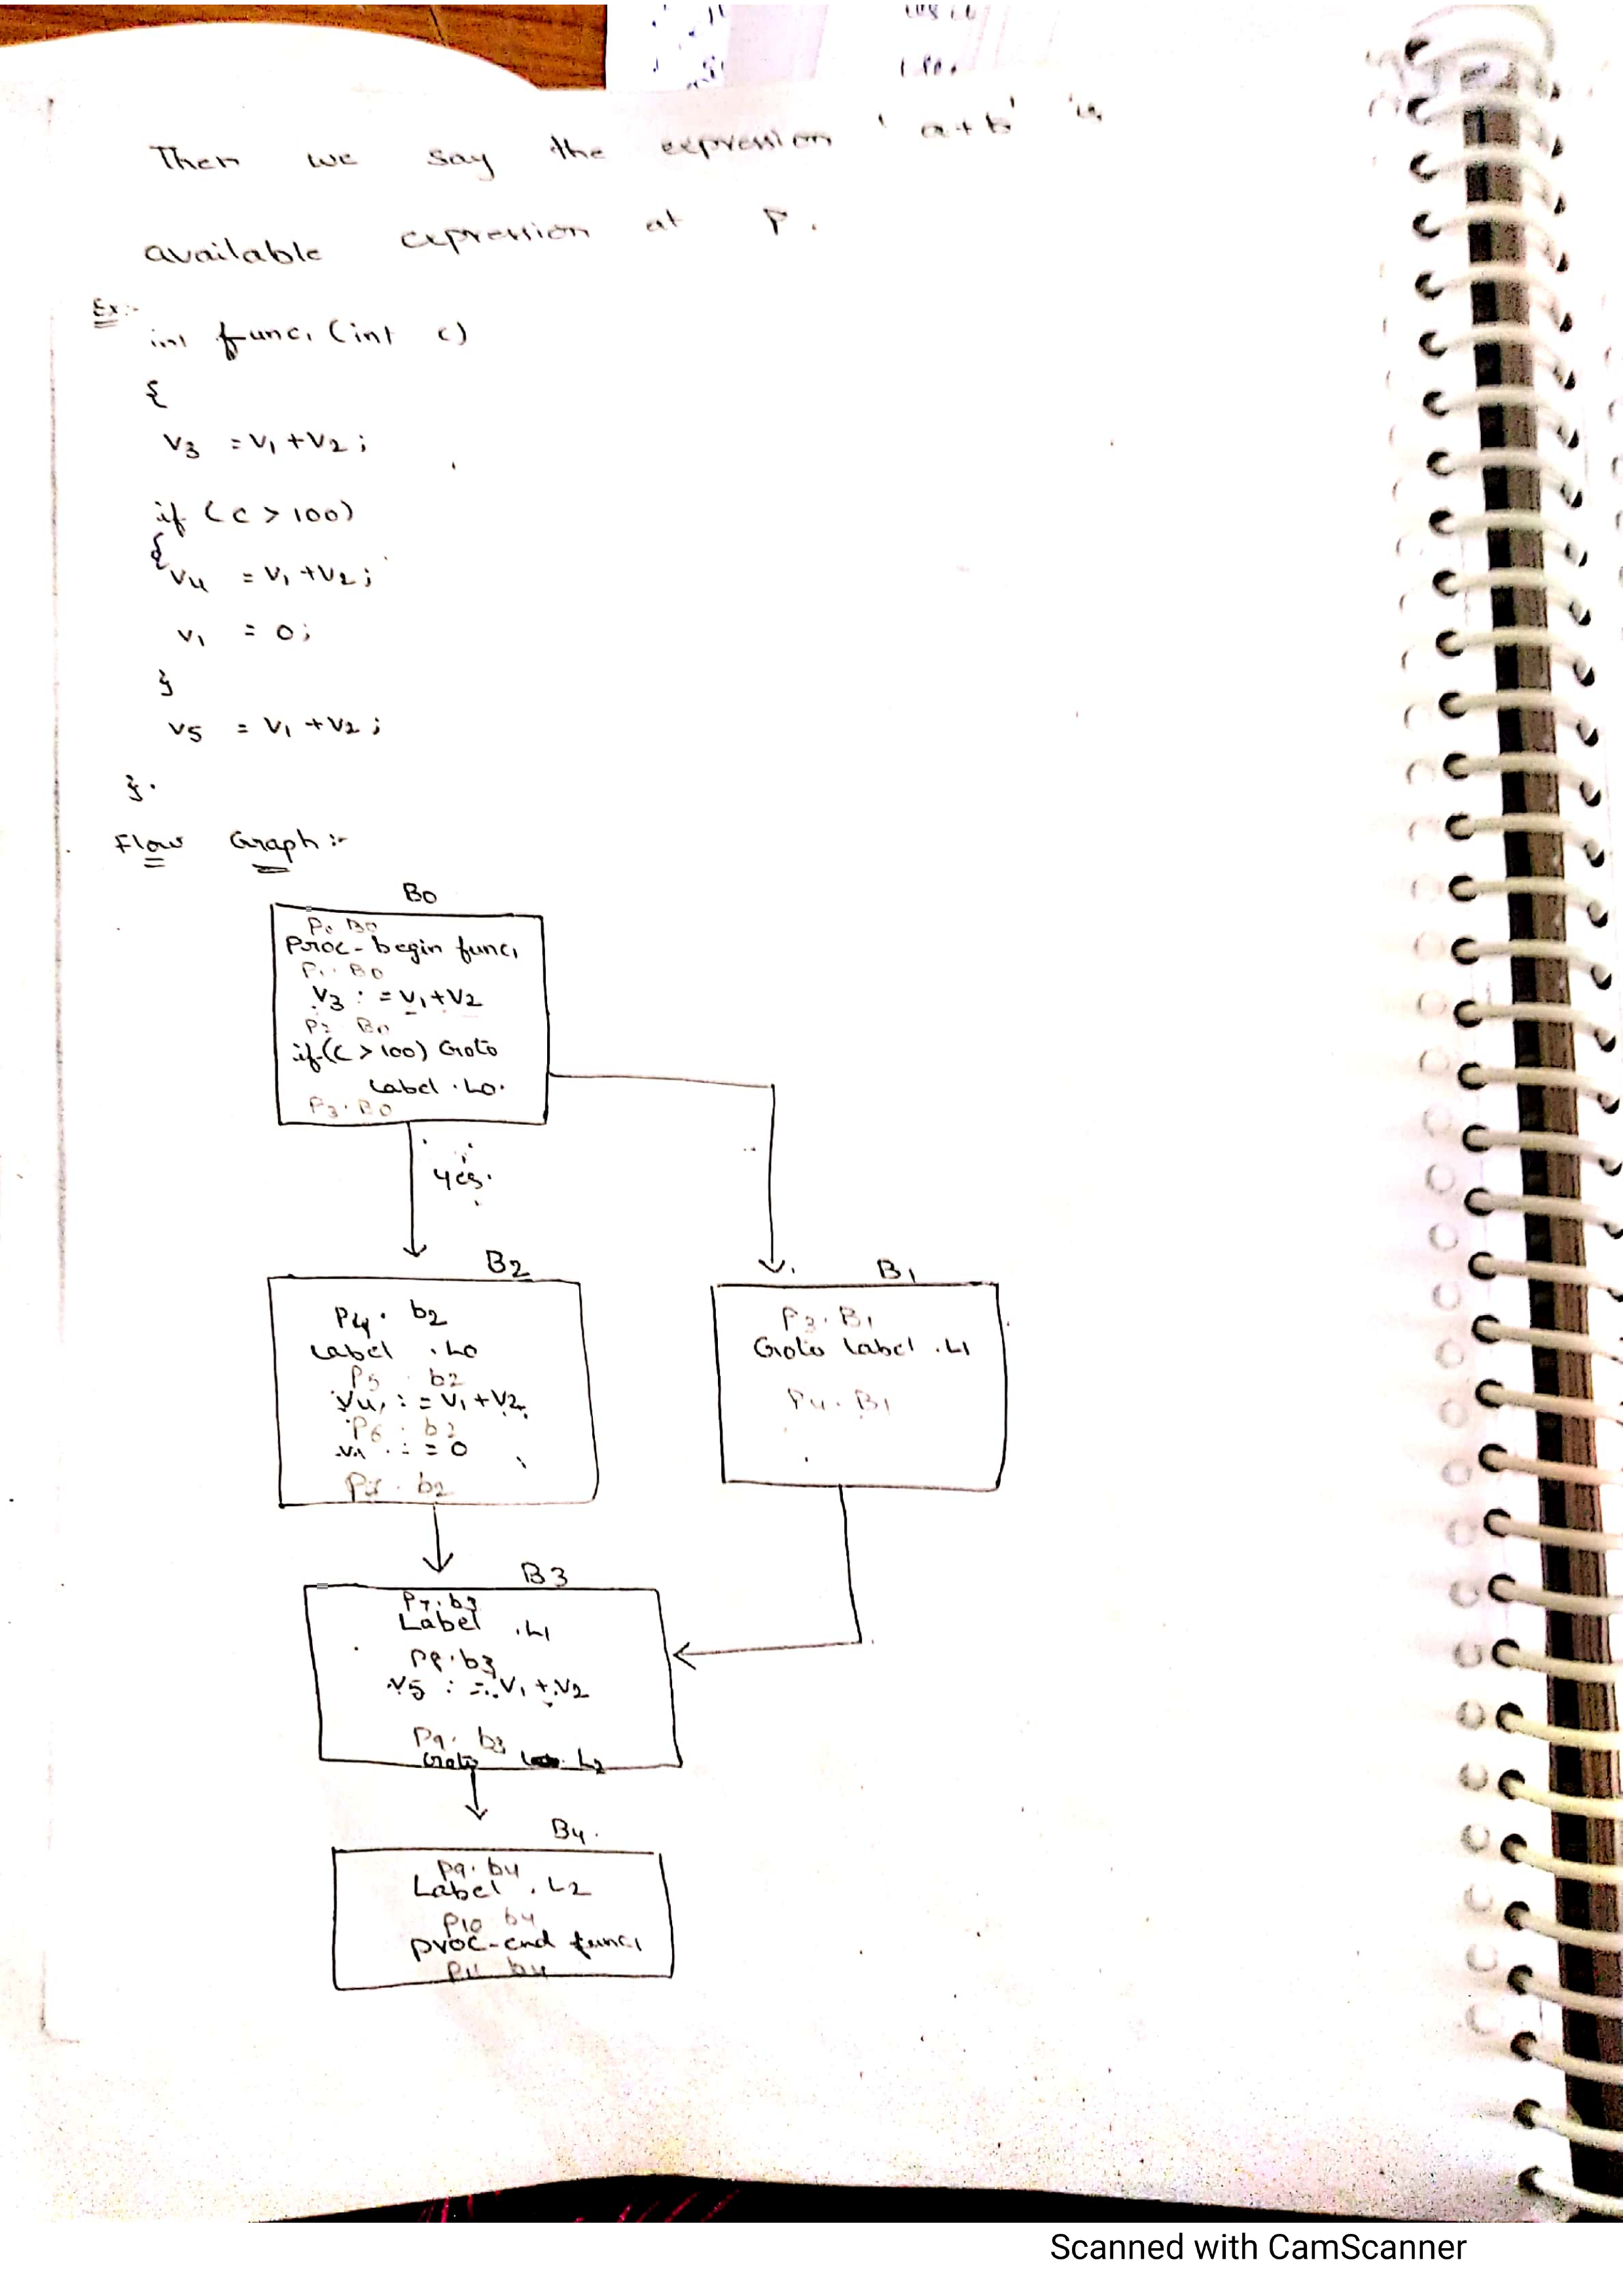 Then we say the expression 'a+b' is
available expression at P.
Ex:-
int func1 (int c)
{
v3 = v1 + v2 ;
if (c > 100)
{
v4 = v1 + v2 ;
v1 = 0 ;
}
v5 = v1 + v2 ;
}.
Flow Graph :-
B0
P0 B0
Proc-begin func1
P1. B0
v3 : = v1 + v2
P2 B0
if (c > 100) Goto
Label .L0.
P3. B0
yes.
B2
P4. b2
Label .L0
P5 . b2
v4 : = v1 + v2
P6 . b2
v1 : = 0
b2
B1
P3. B1
Goto Label .L1
P4. B1
B3
P7. b3
Label .L1
P8. b3
v5 : = v1 + v2
P9. b3
Goto L2
B4.
P9. b4
Label . L2
P10 b4
proc-end func1
P11 b4
Scanned with CamScanner